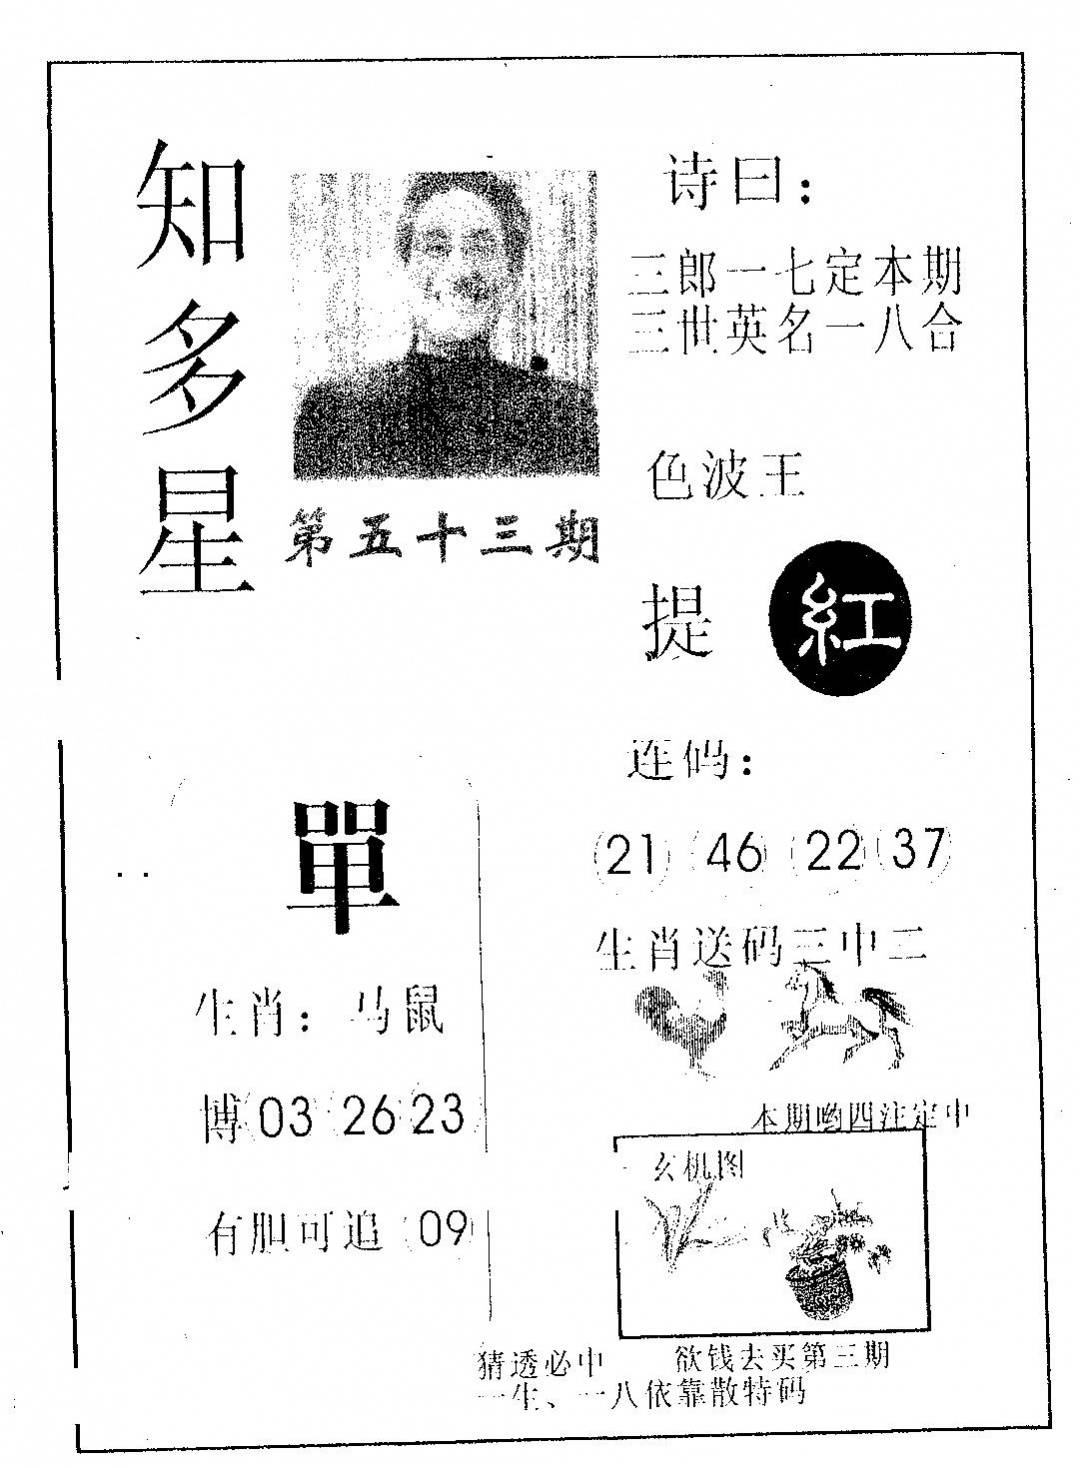 知多星
第五十三期
诗曰：
三郎一七定本期
三世英名一八合
色波王
提 紅
单
生肖：马鼠
博 03 26 23
有胆可追 09
连码：
21 46 22 37
生肖送码三中二
本期哟四注定中
玄机图
猜透必中 欲钱去买第三期
一生、一八依靠散特码